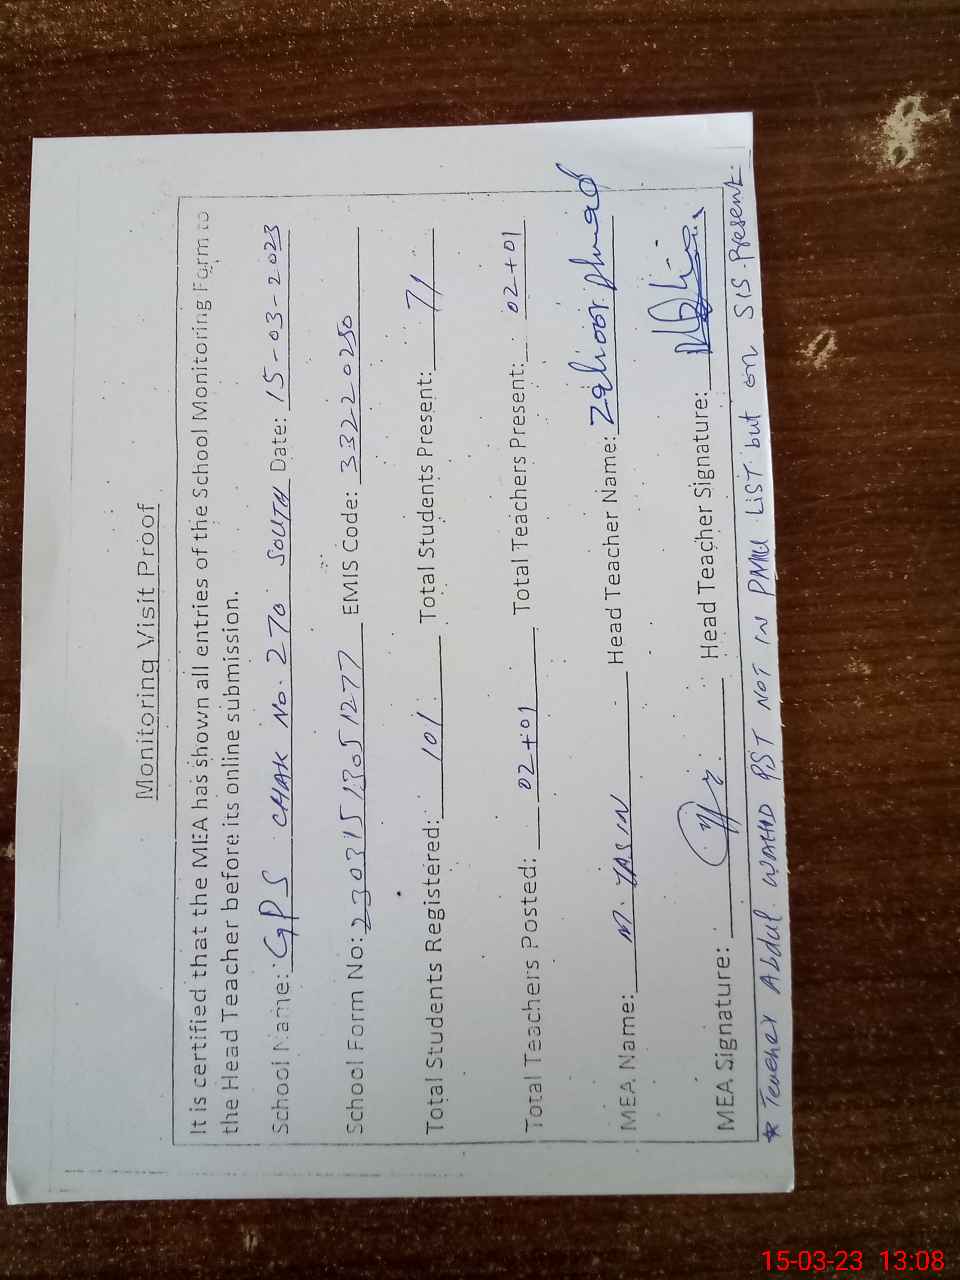 Monitoring Visit Proof
It is certified that the MEA has shown all entries of the School Monitoring Form to
the Head Teacher before its online submission.
School Name: GPS CHAK No. 270 SOUTH Date: 15-03-2023
School Form No: 23031513051277 EMIS Code: 33220250
Total Students Registered: 101 Total Students Present: 71
Total Teachers Posted: 02+01 Total Teachers Present: 02+01
MEA Name: M. YASIN Head Teacher Name: Zahoor Ahmad
MEA Signature: Head Teacher Signature:
* Teacher Abdul WAHID PST NOT IN PMIU LIST but on SIS Present.
15-03-23 13:08